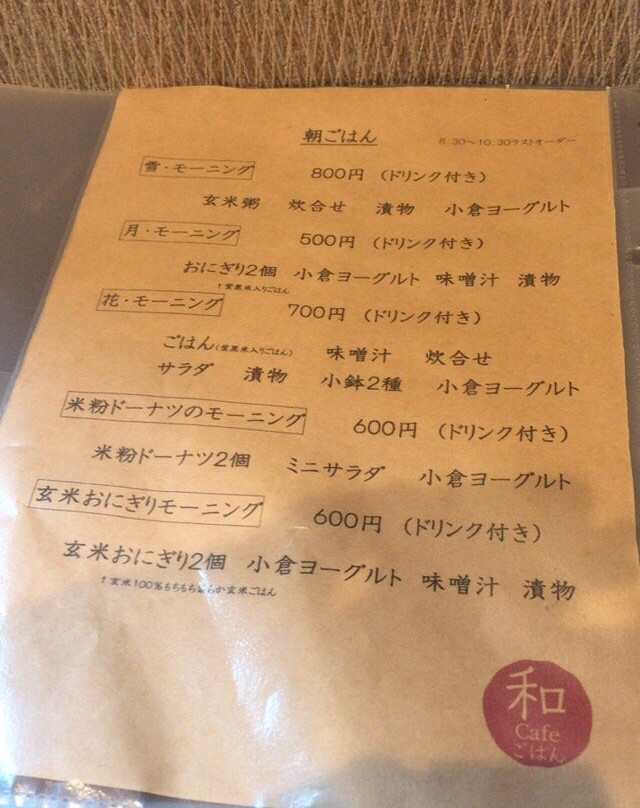 朝ごはん 8:30～10:30ラストオーダー
雪・モーニング 800円 (ドリンク付き)
玄米粥 炊合せ 漬物 小倉ヨーグルト
月・モーニング 500円 (ドリンク付き)
おにぎり2個 小倉ヨーグルト 味噌汁 漬物
↑紫黒米入りごはん
花・モーニング 700円 (ドリンク付き)
ごはん(紫黒米入りごはん) 味噌汁 炊合せ
サラダ 漬物 小鉢2種 小倉ヨーグルト
米粉ドーナツのモーニング 600円 (ドリンク付き)
米粉ドーナツ2個 ミニサラダ 小倉ヨーグルト
玄米おにぎりモーニング 600円 (ドリンク付き)
玄米おにぎり2個 小倉ヨーグルト 味噌汁 漬物
↑玄米100%もちもち柔らか玄米ごはん
和
Cafe
ごはん